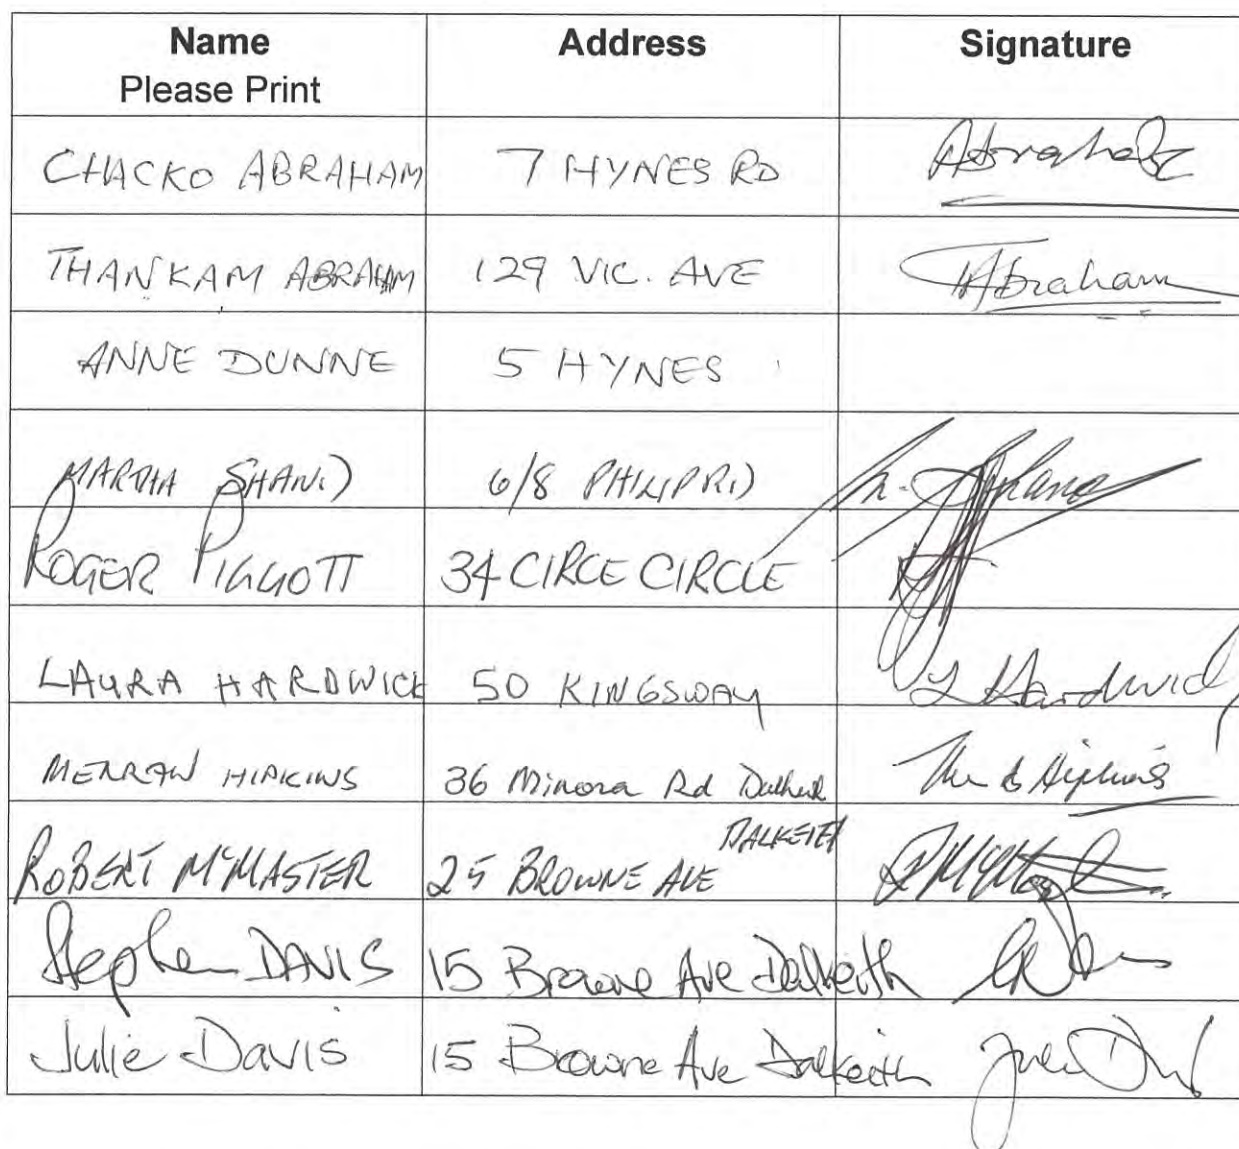 Name Address Signature
Please Print
CHACKO ABRAHAM 7 HYNES RD Abraham
THANKAM ABRAHAM 129 VIC. AVE TAbraham
ANNE DUNNE 5 HYNES
MARTHA SHAND 6/8 PHILIP RD M.
ROGER PIGGOTT 34 CIRCE CIRCLE
LAURA HARDWICK 50 KINGSWAY L Hardwick
MERRAN HIPKINS 36 Minora Rd Dalkeith Hipkins
DALKEITH
ROBERT McMASTER 25 BROWNE AVE
Stephen DAVIS 15 Browne Ave Dalkeith
Julie Davis 15 Browne Ave Dalkeith